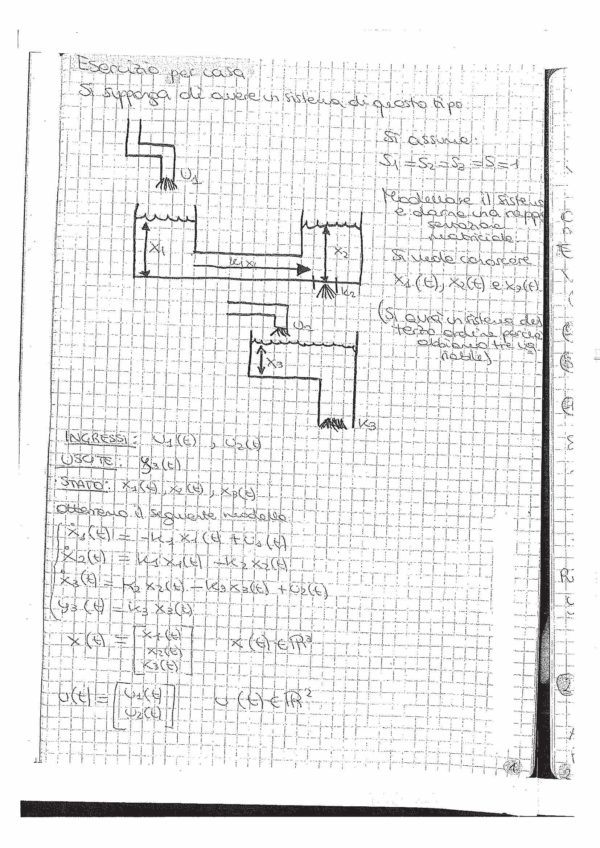 Esercizio per casa
Si supponga di avere un sistema di questo tipo
Si assume:
S1 = S2 = S2 = S = 1
Modellare il sistema
e darne una rappre
sentazione
matriciale.
Si vuole conoscere
x1(t), x2(t) e x3(t).
(Si avrà un sistema del
terzo ordine perché
abbiamo tre va
riabile)
U1
x1
k1x1
x2
k2
U2
x3
k3
INGRESSI: u1(t) , u2(t)
USCITE: y3(t)
STATO: x1(t), x2(t), x3(t)
otteremo il seguente modello
ẋ1(t) = -k1 x1(t) + u1(t)
ẋ2(t) = k1 x1(t) - k2 x2(t)
ẋ3(t) = k2 x2(t) - k3 x3(t) + u2(t)
y3(t) = k3 x3(t)
x(t) = [x1(t)
x2(t)
x3(t)] x(t) ∈ ℝ³
u(t) = [u1(t)
u2(t)] u(t) ∈ ℝ²